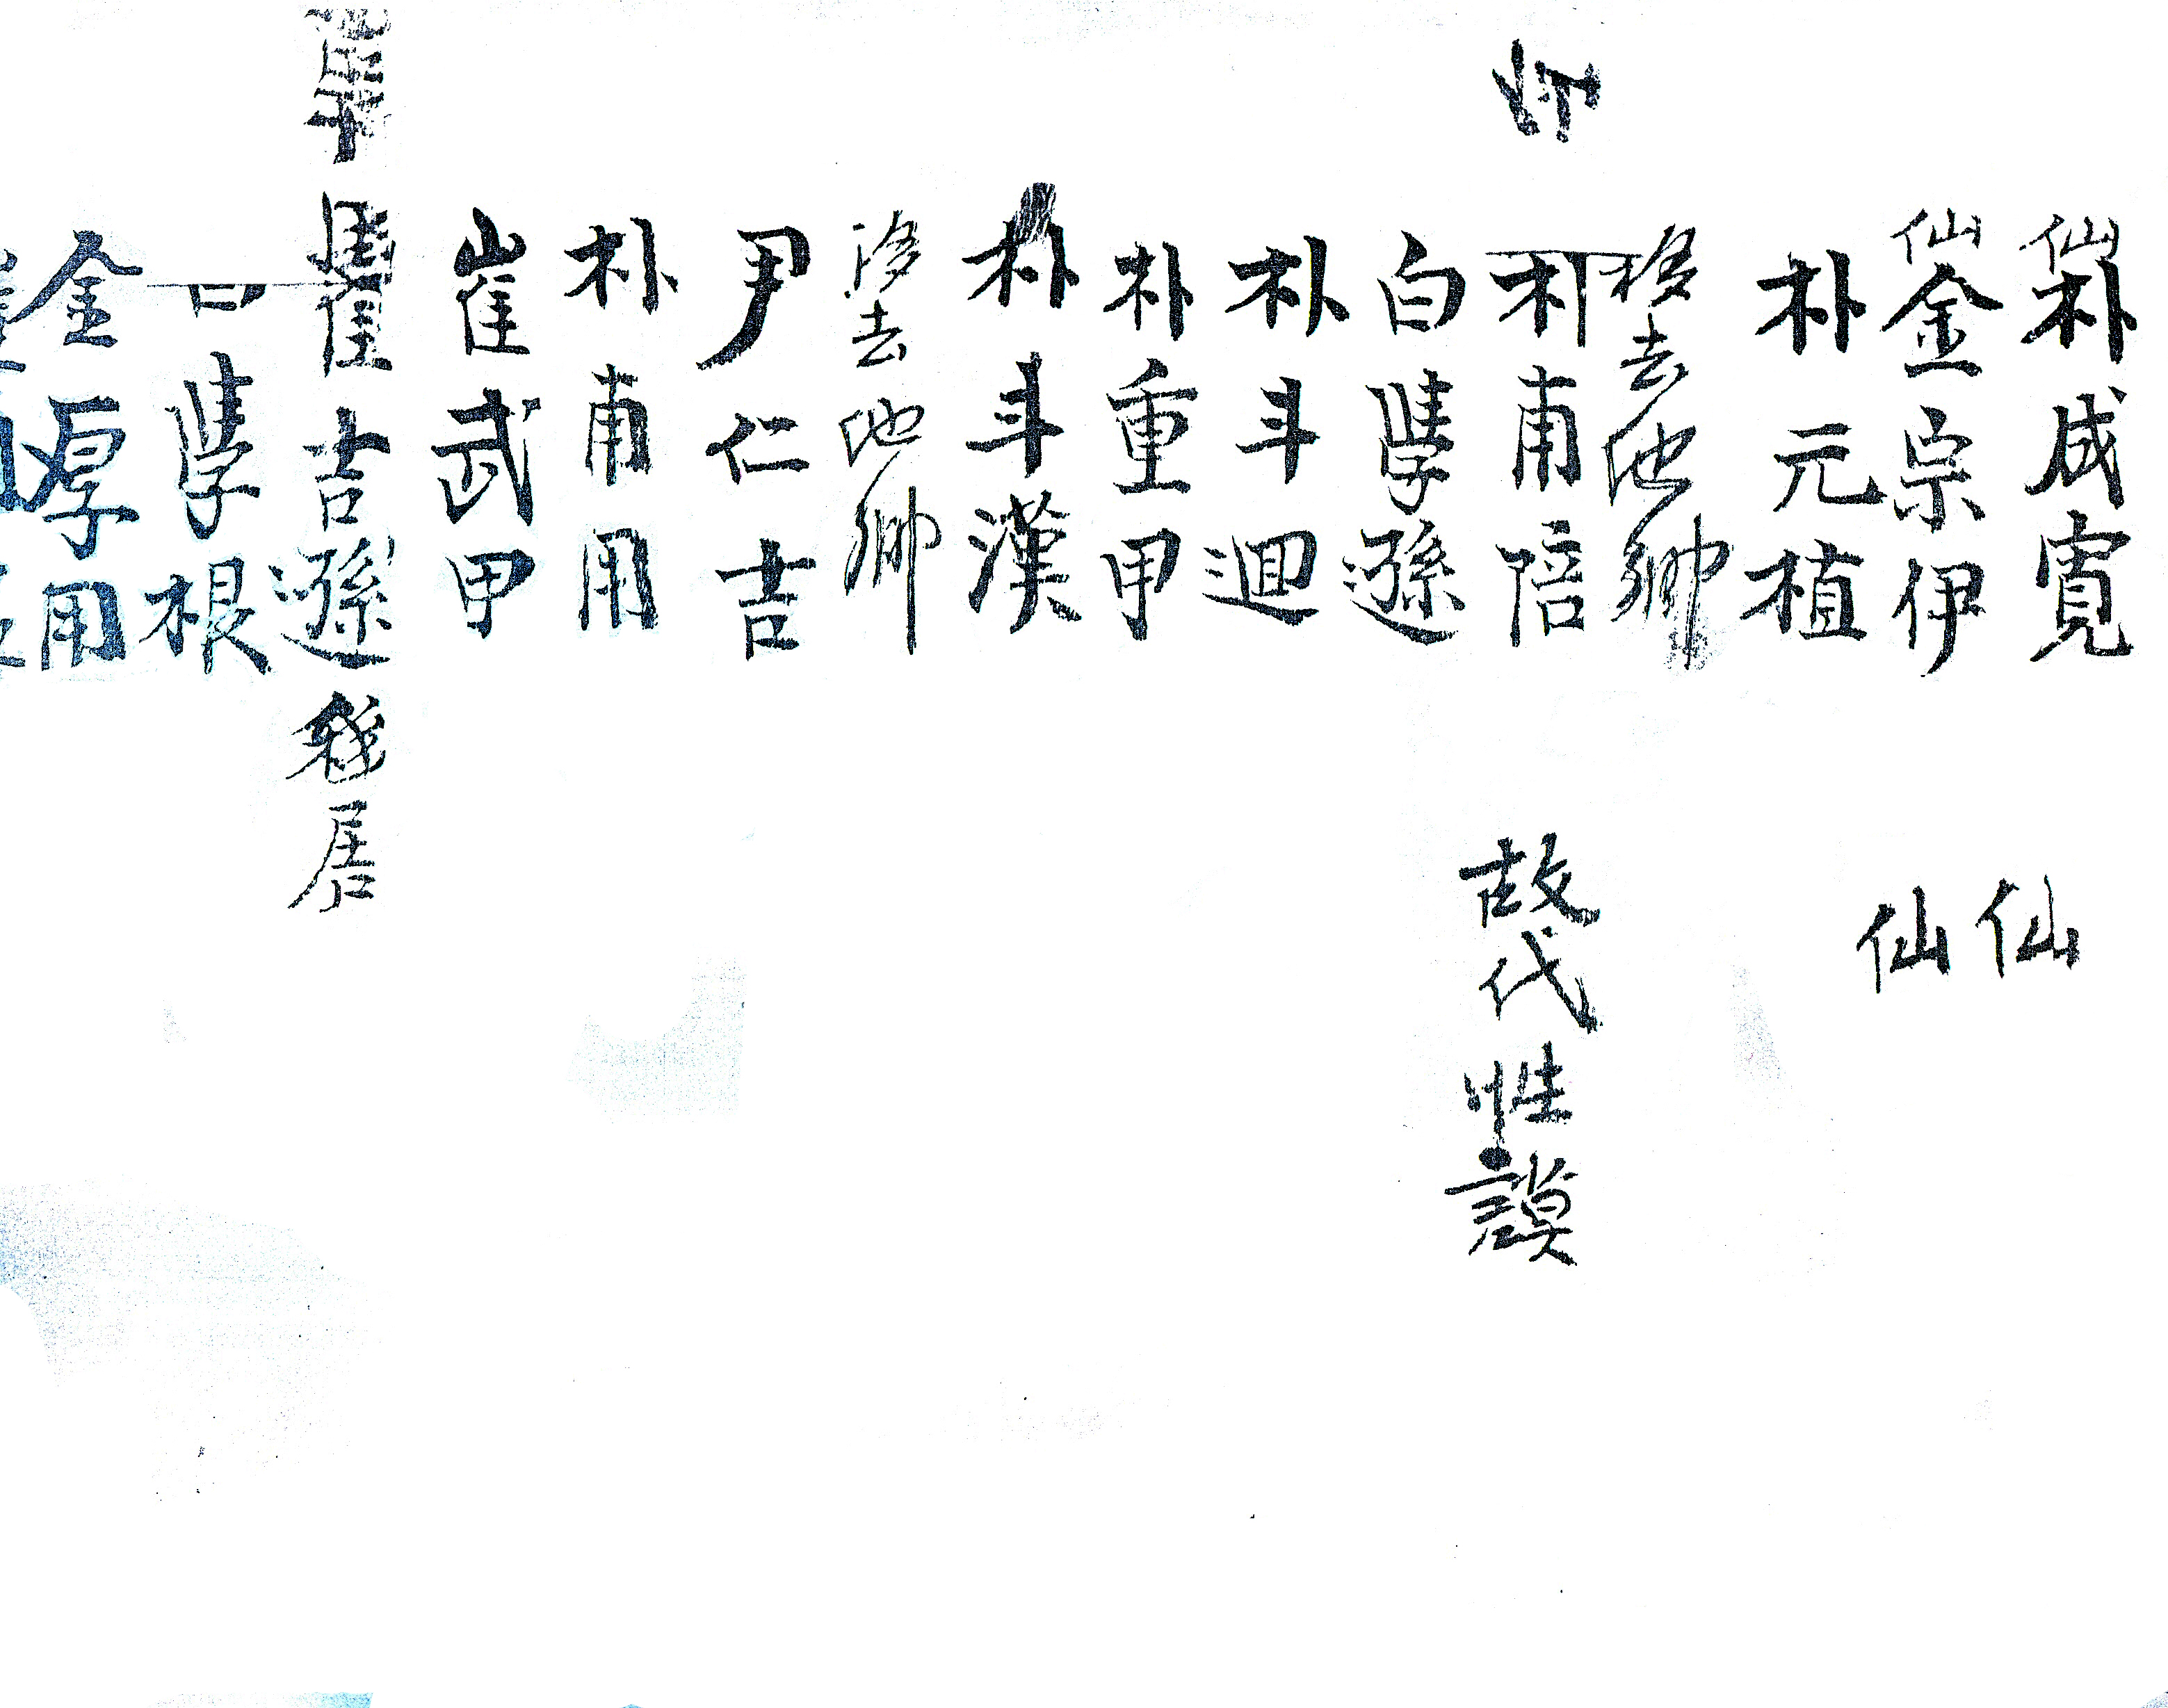 仙朴成寬
仙
仙金宗伊
仙
朴元植
移去他鄉
朴甫陪
故代性謨
白學遜
朴斗迴
朴重甲
朴斗漢
移去他鄉
尹仁吉
朴甫用
崔武甲
崔吉遜移居
白學根
金厚用